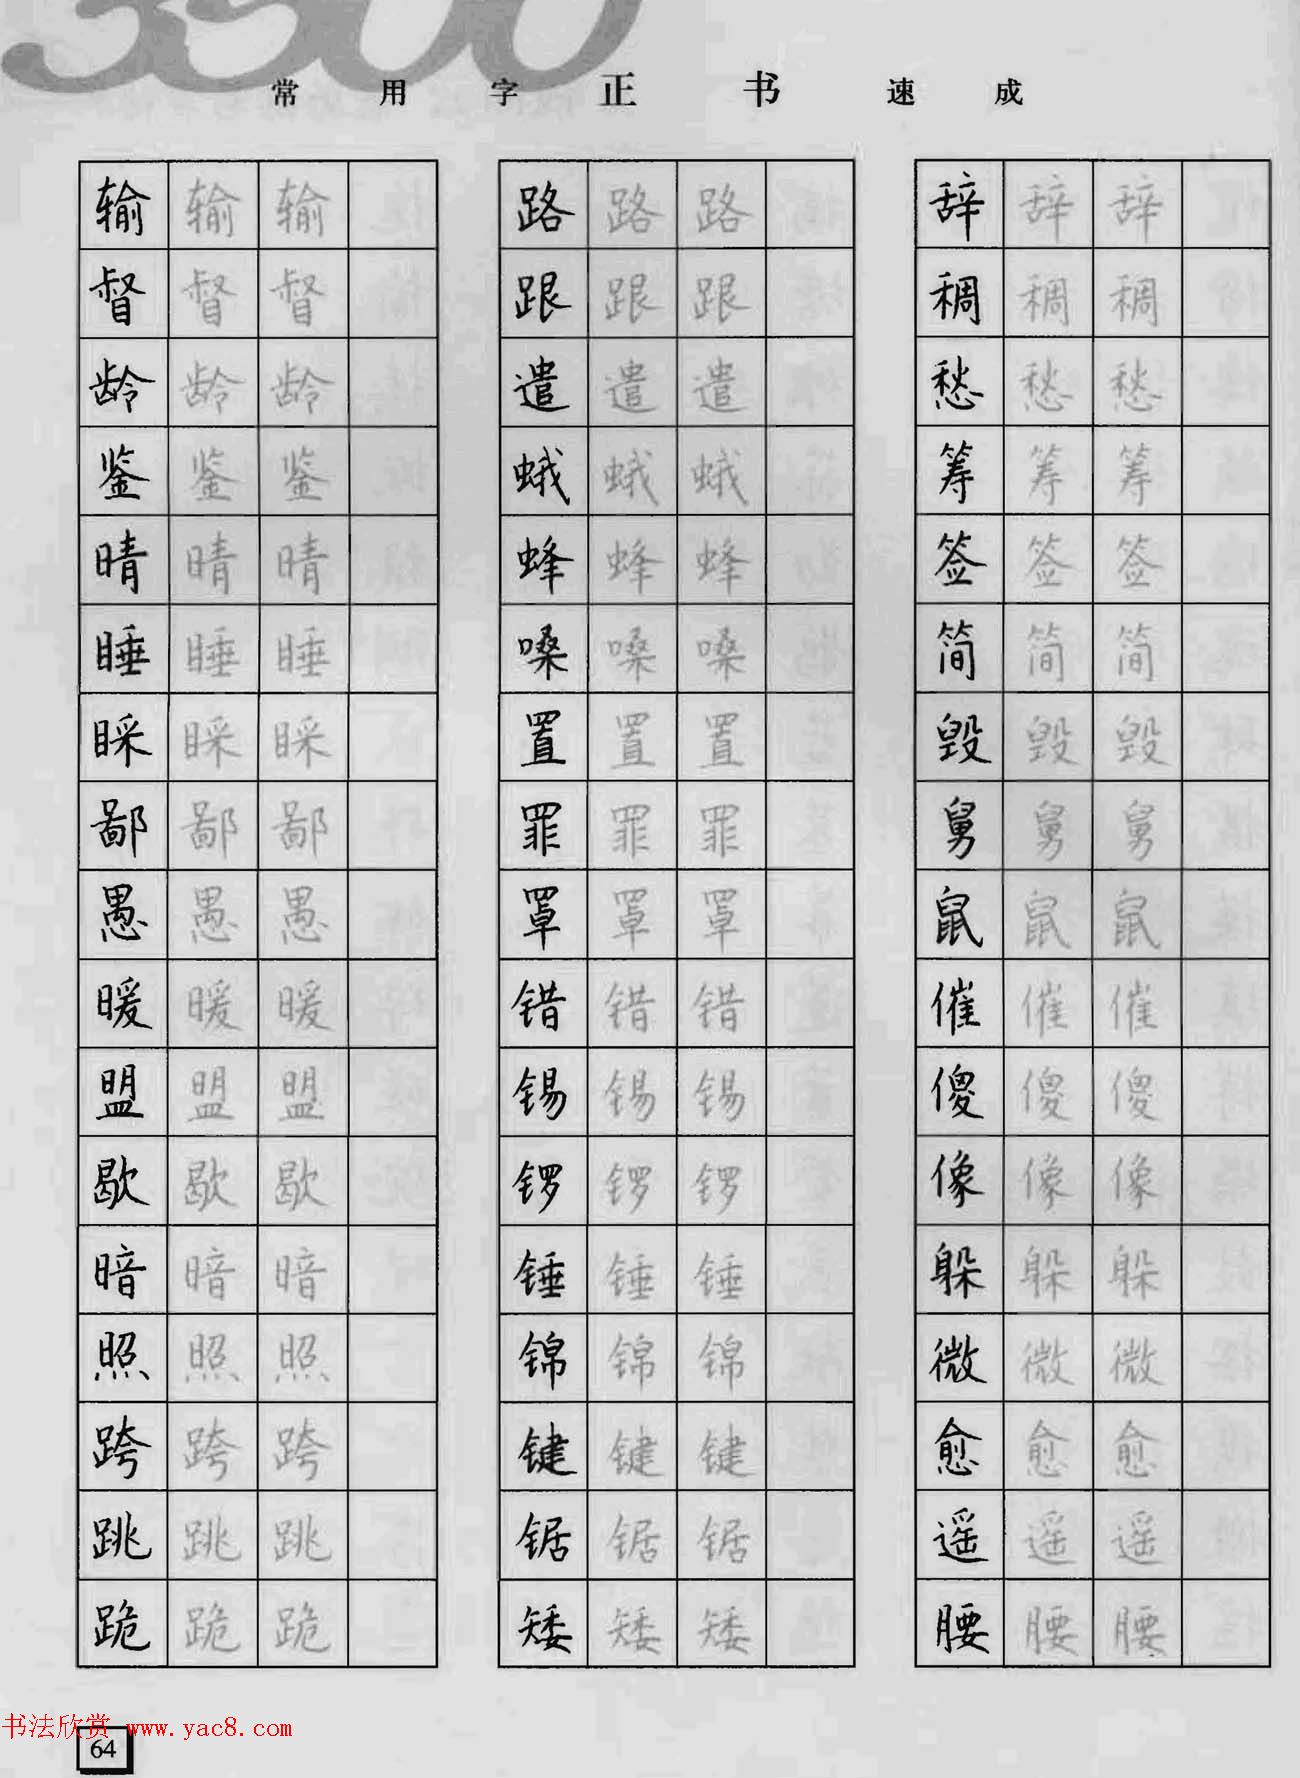 3500
常用字正书速成
输 输 输 路 路 路 辞 辞 辞
督 督 督 跟 跟 跟 稠 稠 稠
龄 龄 龄 遣 遣 遣 愁 愁 愁
鉴 鉴 鉴 蛾 蛾 蛾 筹 筹 筹
晴 晴 晴 蜂 蜂 蜂 签 签 签
睡 睡 睡 嗓 嗓 嗓 简 简 简
睬 睬 睬 置 置 置 毁 毁 毁
鄙 鄙 鄙 罪 罪 罪 舅 舅 舅
愚 愚 愚 罩 罩 罩 鼠 鼠 鼠
暖 暖 暖 错 错 错 催 催 催
盟 盟 盟 锡 锡 锡 傻 傻 傻
歇 歇 歇 锣 锣 锣 像 像 像
暗 暗 暗 锤 锤 锤 躲 躲 躲
照 照 照 锦 锦 锦 微 微 微
跨 跨 跨 键 键 键 愈 愈 愈
跳 跳 跳 锯 锯 锯 遥 遥 遥
跪 跪 跪 矮 矮 矮 腰 腰 腰
书法欣赏 www.yac8.com
64